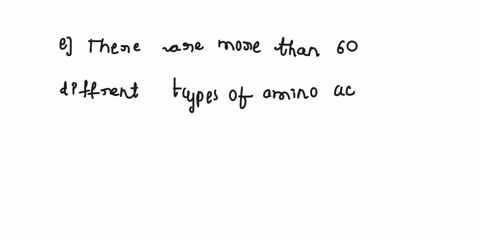 e] There are more than 60
diffrent types of amino ac